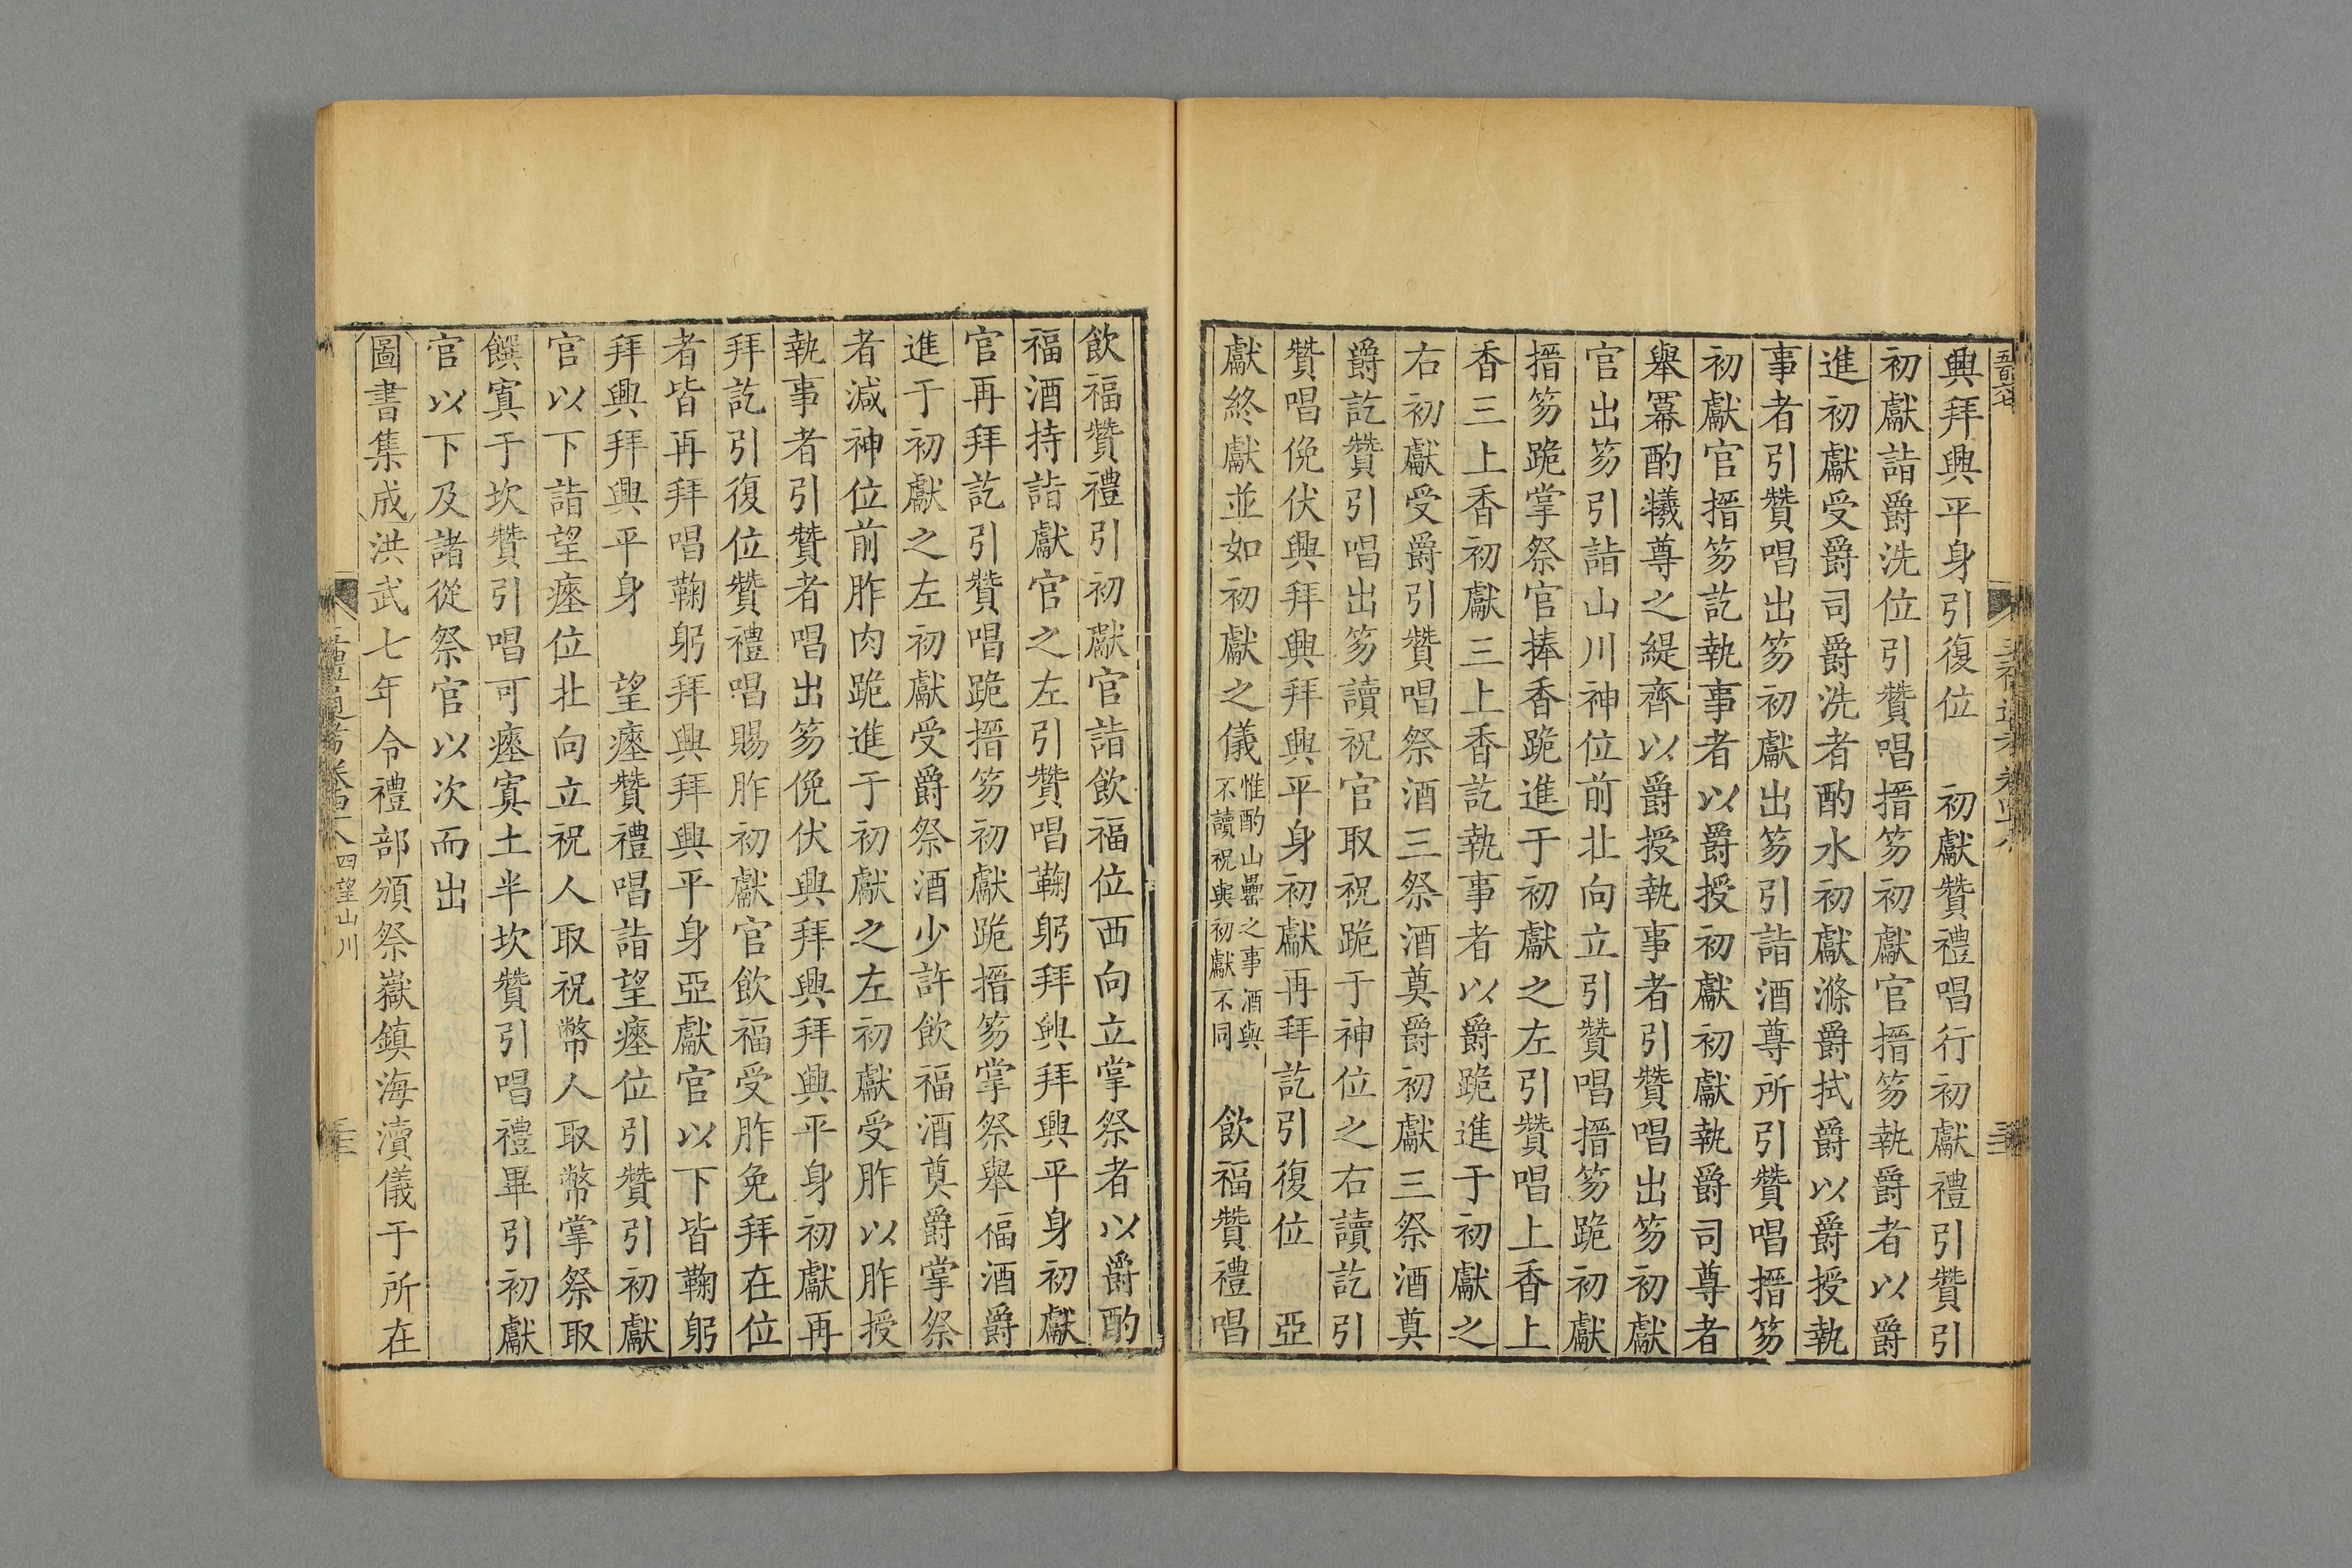 興拜興平身引復位　初獻贊禮唱行初獻禮引贊引
初獻詣爵洗位引贊唱搢笏初獻官搢笏執爵者以爵
進初獻受爵司爵洗者酌水初獻滌爵拭爵以爵授執
事者引贊唱出笏初獻出笏引詣酒尊所引贊唱搢笏
初獻官搢笏訖執事者以爵授初獻初獻執爵司尊者
舉冪酌犧尊之緹齊以爵授執事者引贊唱出笏初獻
官出笏引詣山川神位前北向立引贊唱搢笏跪初獻
搢笏跪掌祭官捧香跪進于初獻之左引贊唱上香上
香三上香初獻三上香訖執事者以爵跪進于初獻之
右初獻受爵引贊唱祭酒三祭酒奠爵初獻三祭酒奠
爵訖贊引唱出笏讀祝官取祝跪于神位之右讀訖引
贊唱俛伏興拜興拜興平身初獻再拜訖引復位　亞
獻終獻並如初獻之儀惟酌山罍之事酒與不讀祝與初獻不同　飲福贊禮唱
飲福贊禮引初獻官詣飲福位西向立掌祭者以爵酌
福酒持詣獻官之左引贊唱鞠躬拜興拜興平身初獻
官再拜訖引贊唱跪搢笏初獻跪搢笏掌祭舉福酒爵
進于初獻之左初獻受爵祭酒少許飲福酒奠爵掌祭
者減神位前胙肉跪進于初獻之左初獻受胙以胙授
執事者引贊者唱出笏俛伏興拜興拜興平身初獻再
拜訖引復位贊禮唱賜胙初獻官飲福受胙免拜在位
者皆再拜唱鞠躬拜興拜興平身亞獻官以下皆鞠躬
拜興拜興平身　望瘞贊禮唱詣望瘞位引贊引初獻
官以下詣望瘞位北向立祝人取祝幣人取幣掌祭取
饌寘于坎贊引唱可瘞寘土半坎贊引唱禮畢引初獻
官以下及諸從祭官以次而出
圖書集成洪武七年令禮部頒祭嶽鎮海瀆儀于所在
五禮通考卷四十八　四望山川